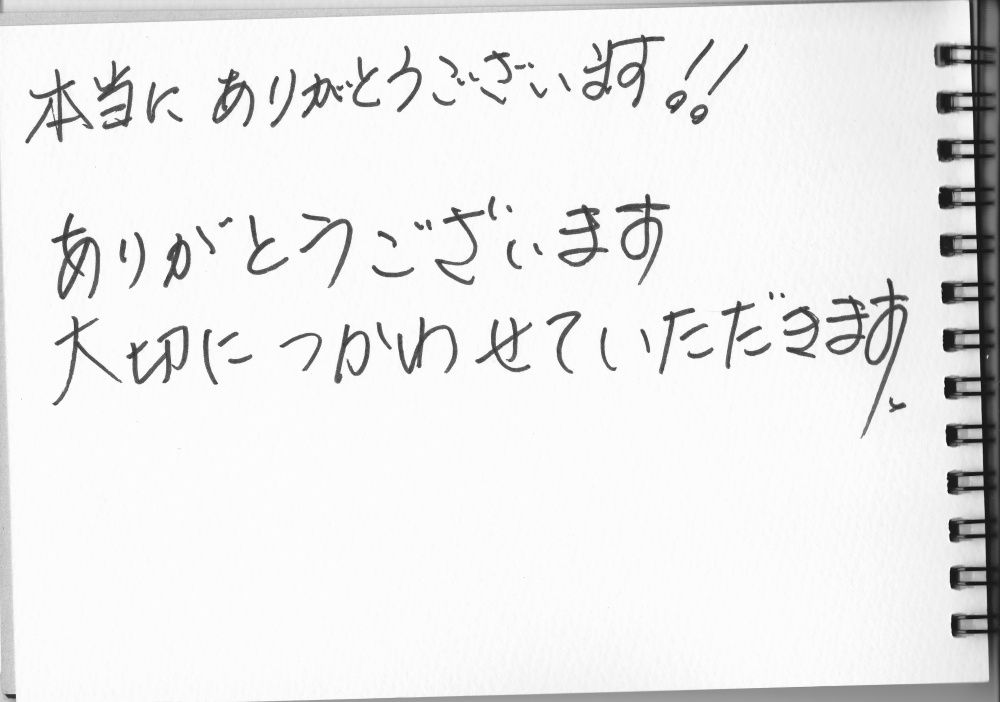 本当に ありがとうございます!!
ありがとうございます
大切につかわせていただきます。